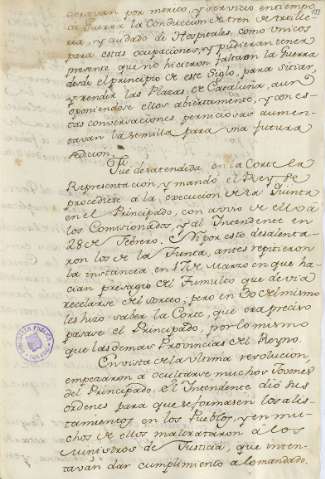 de Guerra la Conduccion de tren de Artille
ria, y cuidado de Hospitales, como unicos
para estas ocupaciones, y pudieran tener
presente que no hicieron falta en la Guerra
desde el principio de este Siglo, para sitiar,
y rendir las Plazas de Cataluña, aun
oponiendose ellos abiertamente, y con es
tas conservaciones perniciosas aumen
tavan la semilla para una futura
sedicion.
Fue desatendida en la Corte la
Representacion, y mandó el Rey se
procediese a la execucion de la Quinta
en el Principado, con aviso de ello a
los Comisionados, y al Intendente en
28 de Febrero. Ni por esto desalenta
ron los de la Junta, antes repitieron
la instancia en 17 de Marzo en que ha
cian presagio del Tumulto que devia
recelarse del sorteo, pero en 30 del mismo
les hizo saber la Corte, que era preciso
pasase el Principado, por lo mismo
que las demas Provincias del Reyno.
En vista de la ultima revolucion,
empezaron a ocultarse muchos Jovenes
del Principado. El Intendente dió sus
ordenes para que se formasen los alis
tamientos en los Pueblos, y en mu
chos de ellos maltrataron a los
Ministros de Justicia, que inten
tavan dar cumplimiento a lo mandado.